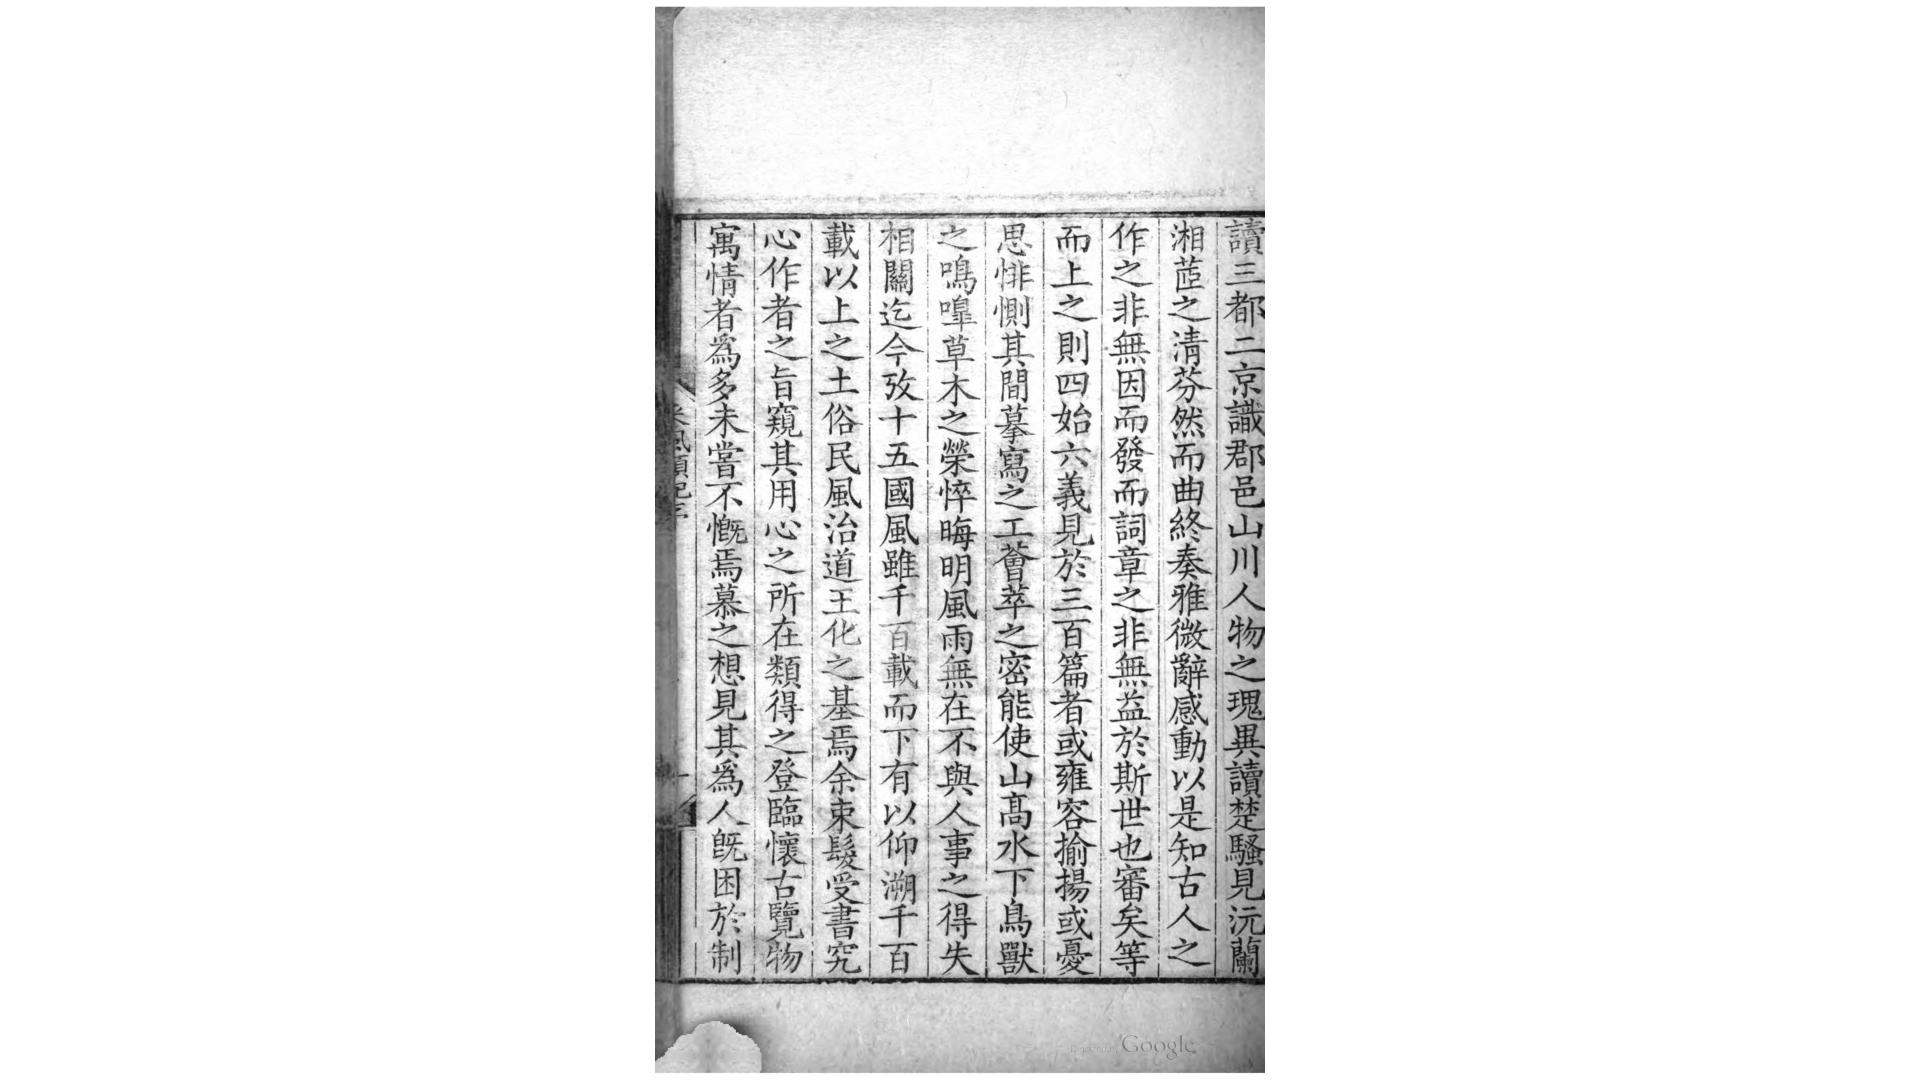 讀三都二京識郡邑山川人物之瑰異讀楚騷見沅蘭
湘茝之清芬然而曲終奏雅微辭感動以是知古人之
作之非無因而發而詞章之非無益於斯世也審矣等
而上之則四始六義見於三百篇者或雍容揄揚或憂
思悱惻其間摹寫之工薈萃之密能使山高水下鳥獸
之鳴嘷草木之榮悴晦明風雨無在不與人事之得失
相關迄今攷十五國風雖千百載而下有以仰溯千百
載以上之土俗民風治道王化之基焉余束髮受書究
心作者之旨窺其用心之所在類得之登臨懷古覽物
寓情者為多未嘗不慨焉慕之想見其為人既困於制
采風類記
Google